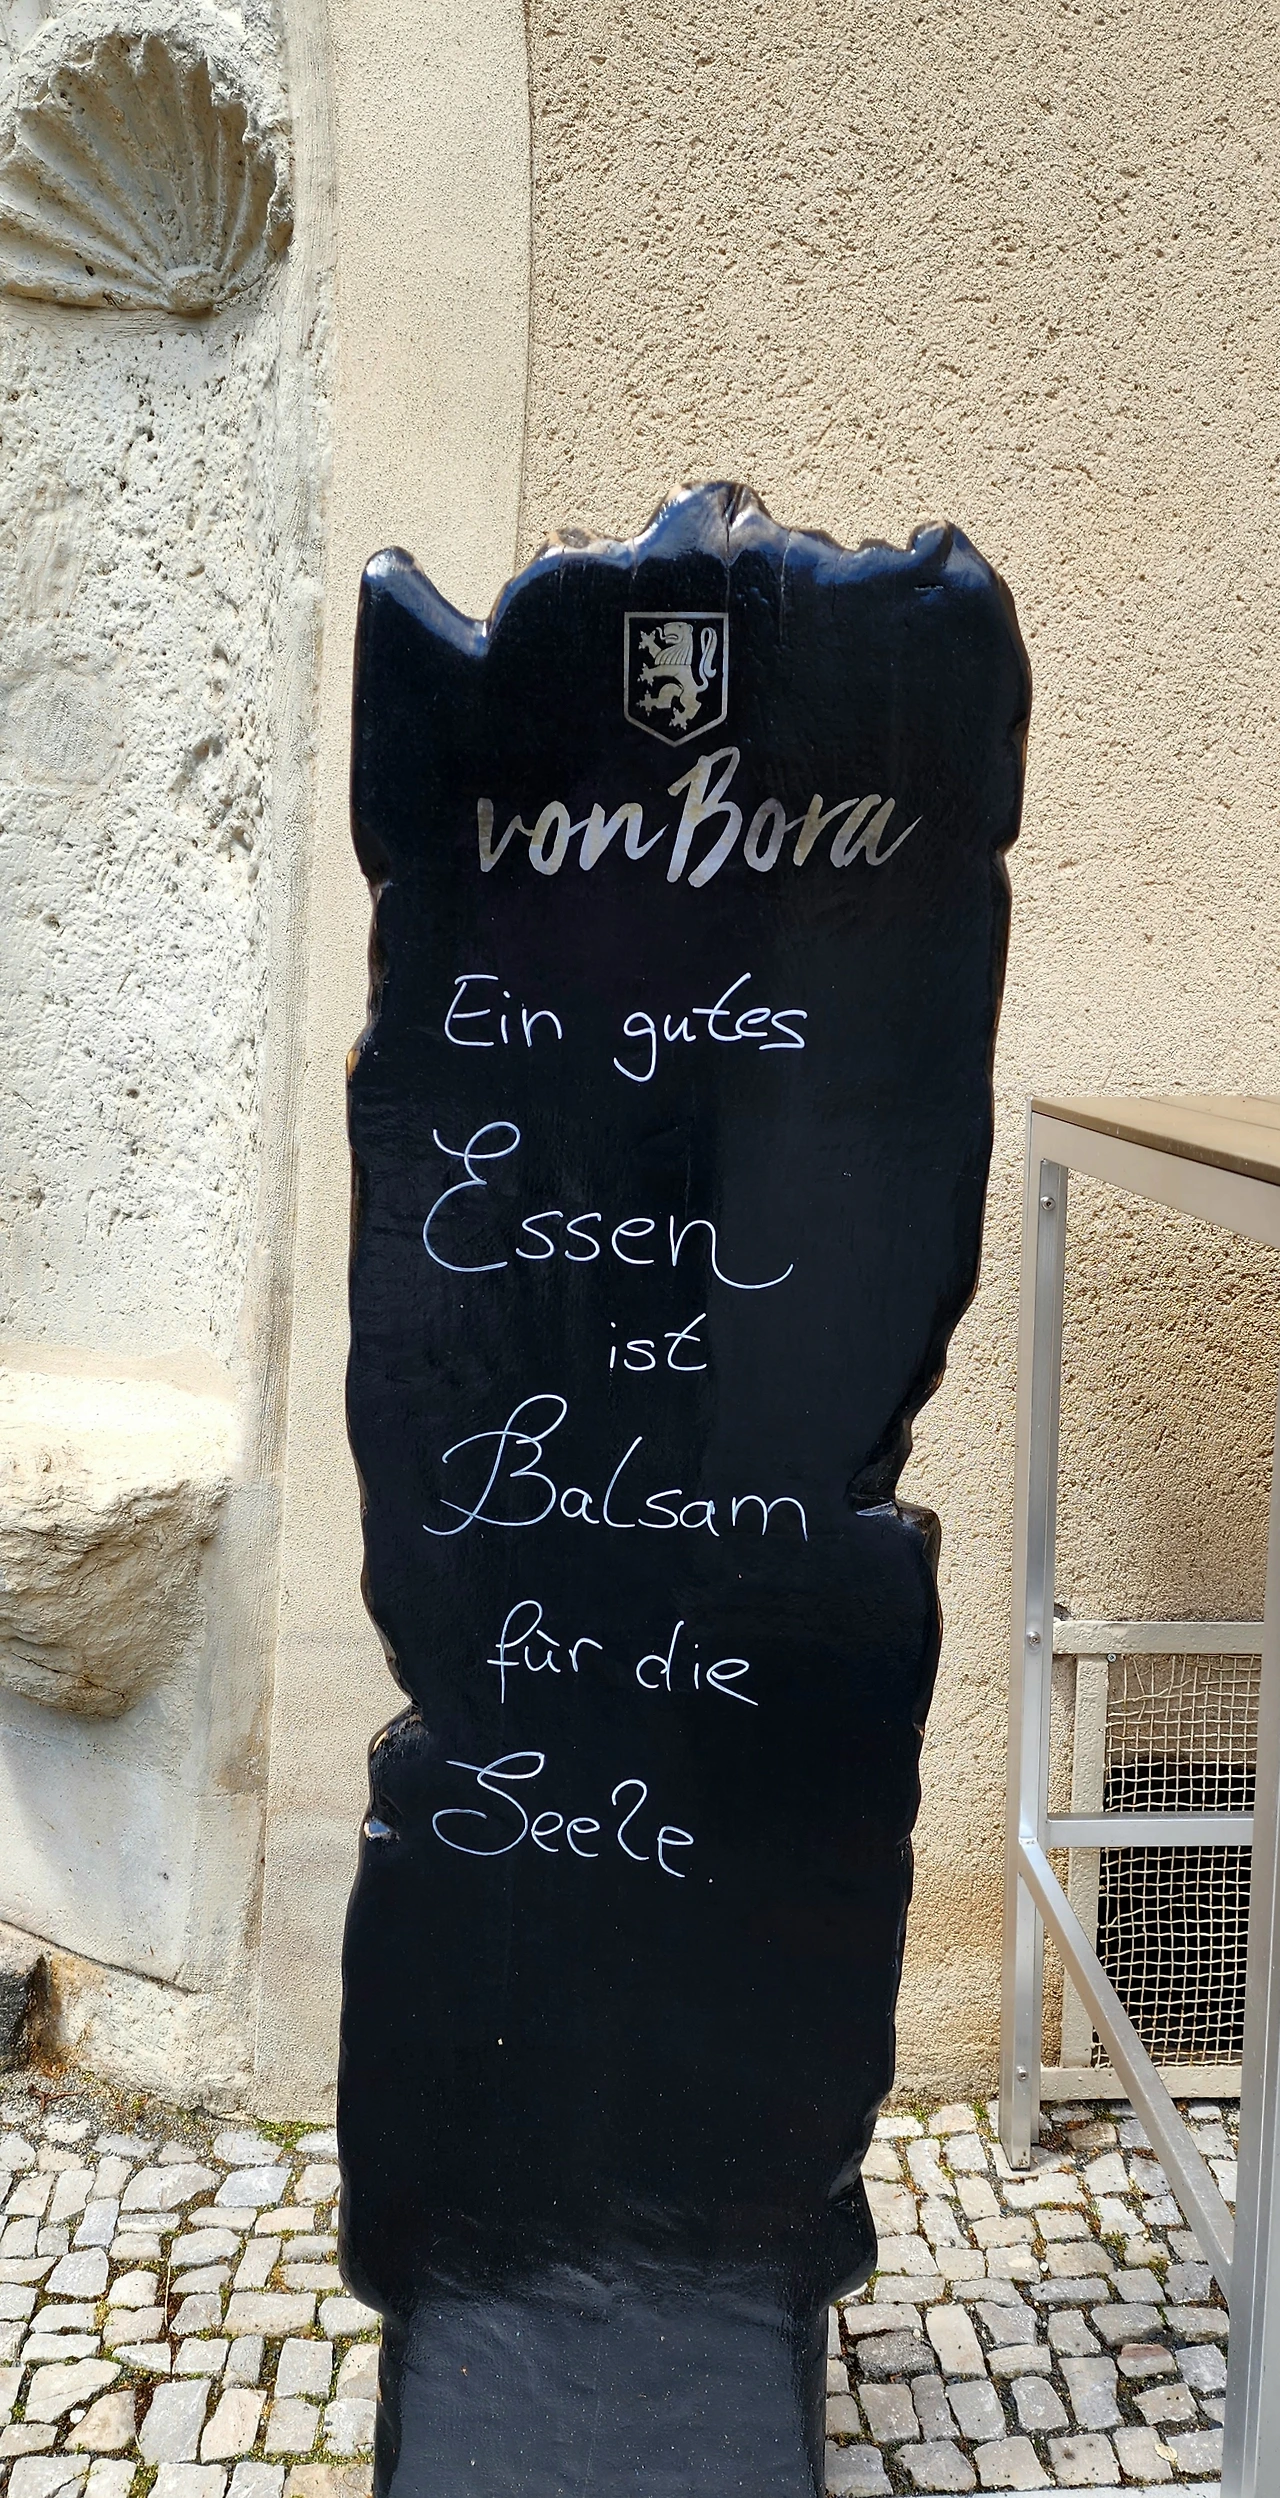 vonBora
Ein gutes
Essen
ist
Balsam
für die
Seele.